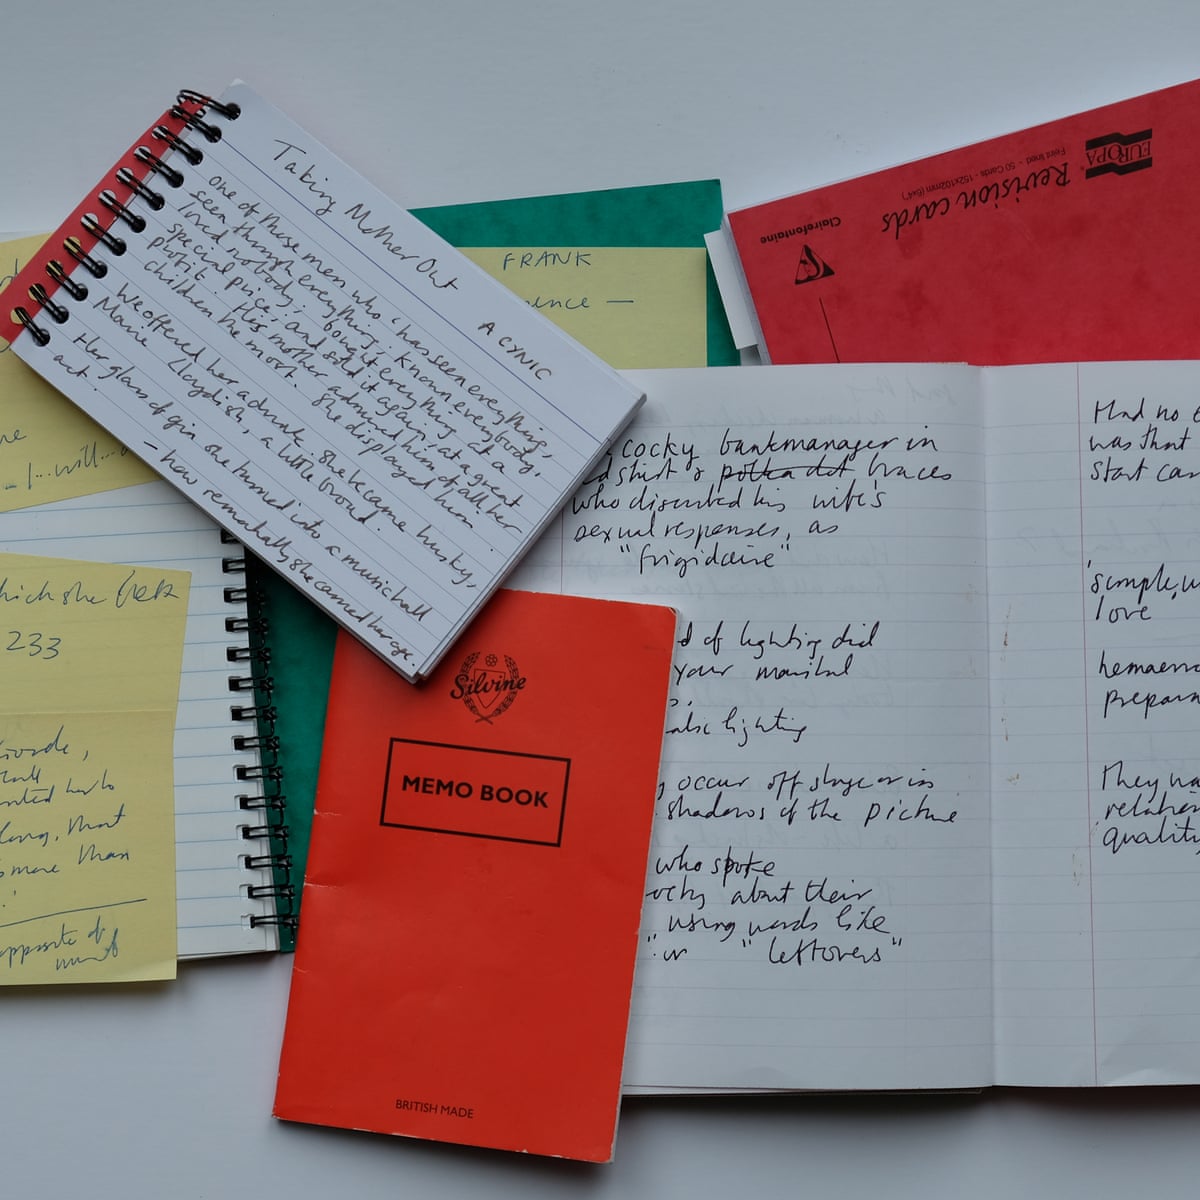 Taking Mother Out
A CYNIC
One of those men who 'has seen everything,
seen through everything, known everybody,
loved nobody; bought everything at a
special price, and sold it again, at a great
profit'. His mother admired him of all her
children the most. She displayed him.
We offered her a drink. She became husky,
Marie Lloydish, a little broad.
Her glass of gin she turned into a music hall
act.
– how remarkably she carried her age.
FRANK
ence —
EUROPA
Revision cards
Feint lined - 50 Cards - 152x102mm (6x4")
Clairefontaine
cocky bankmanager in
shirt & polka dot braces
who discussed his wife's
sexual responses, as
"frigidaire"
d of lighting did
your marital
lighting
occur off stage or in
shadows of the picture
who spoke
about their
using words like
or "leftovers"
Had no
was that
start
'simple,
love'
prepar
They
relation
quality
I...will...
which she
233
nted her to
long, that
is more than
opposite of
Silvine
MEMO BOOK
BRITISH MADE